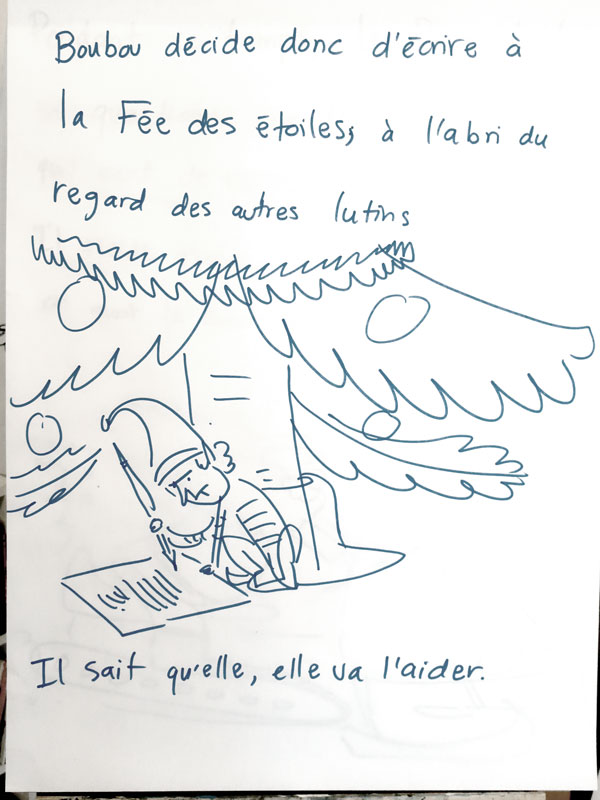 Boubou décide donc d'écrire à
la Fée des étoiles, à l'abri du
regard des autres lutins
Il sait qu'elle, elle va l'aider.